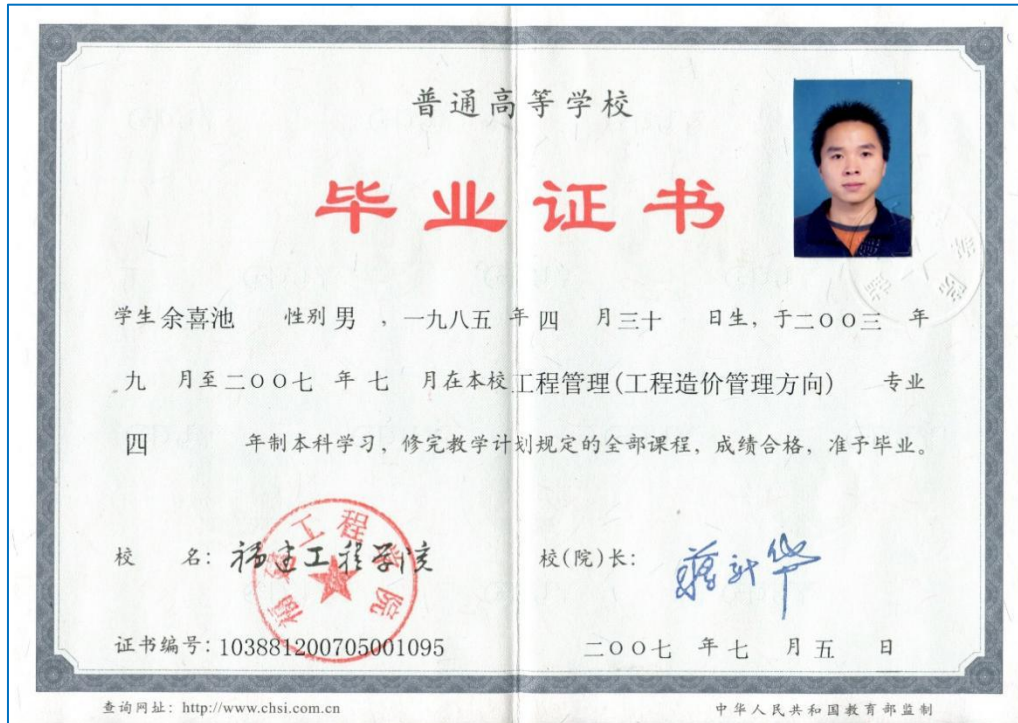 普通高等学校
毕业证书
学生余喜池 性别男 ，一九八五 年 四 月三十 日生，于二〇〇三 年
九 月至二〇〇七 年 七 月在本校工程管理(工程造价管理方向) 专业
四 年制本科学习，修完教学计划规定的全部课程，成绩合格，准予毕业。
校 名：福建工程学院
福建工程学院
校(院)长：蒋新华
证书编号：103881200705001095
二〇〇七 年 七 月 五 日
查询网址：http://www.chsi.com.cn
中华人民共和国教育部监制